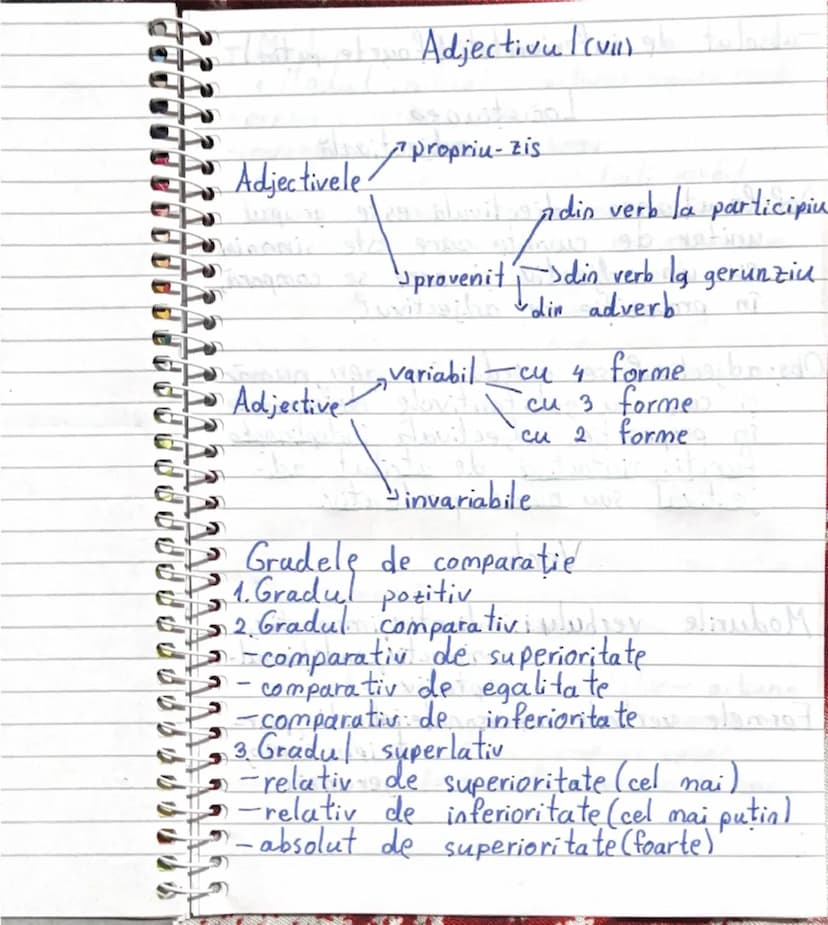 Adjectivul (VII)
propriu-zis
Adjectivele
din verb la participiu
provenit din verb la gerunziu
din adverb
variabil cu 4 forme
Adjective cu 3 forme
cu 2 forme
invariabile
Gradele de comparație
1. Gradul pozitiv
2. Gradul comparativ:
-comparativ de superioritate
- comparativ de egalitate
-comparativ de inferioritate
3. Gradul superlativ
-relativ de superioritate (cel mai)
-relativ de inferioritate (cel mai puțin)
-absolut de superioritate (foarte)